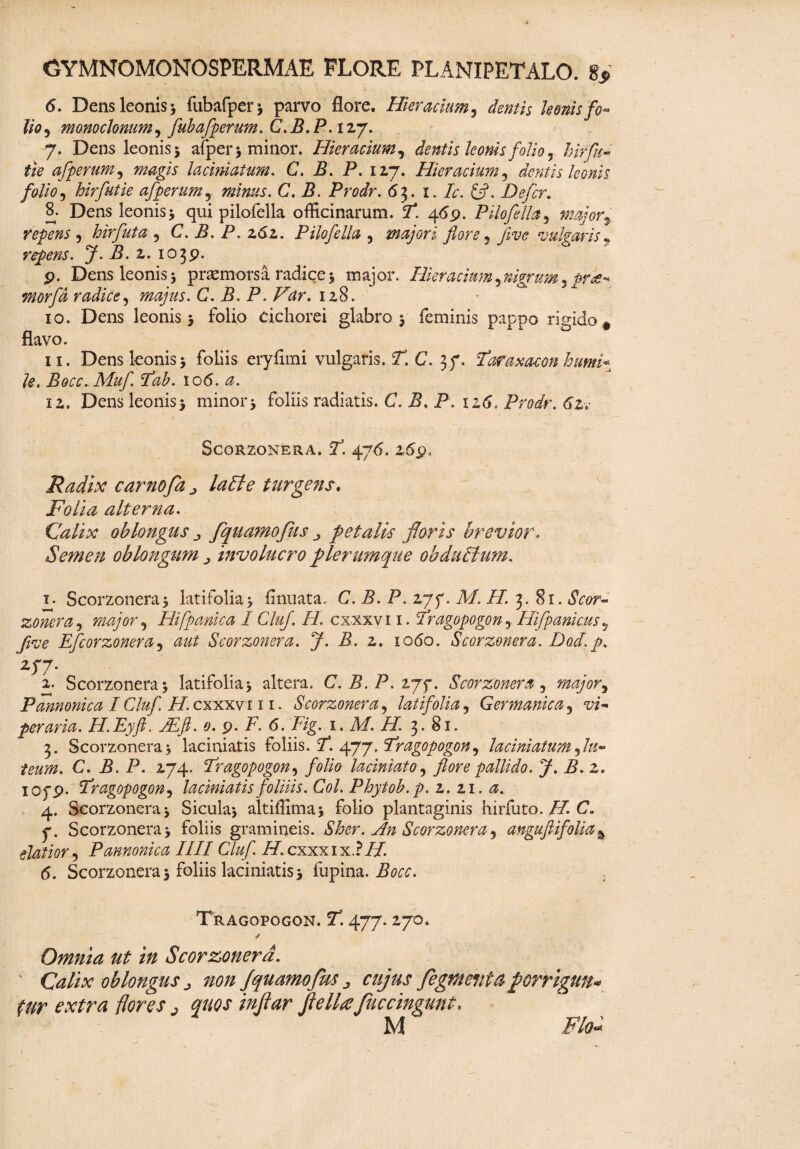 GYMNOMONOSPERMAE FLORE PLANIPETALO. 89
6. Dens leonis; ſubaſper; parvo flore. Hieracium, dentis leonis fo-
lio, monoclonum, ſubaſperum. C.B.P. 127.
7. Dens leonis; aſper; minor. Hieracium, dentis leonis folio, hirſu-
tie aſperum, magis laciniatum. C. B. P. 127. Hieracium, dentis leonis
folio, hirſutie aſperum, minus. C. B. Prodr. 63. 1. Ic. & Deſcr.
8. Dens leonis; qui piloſella officinarum. T. 469. Piloſella, major,
repens, hirſuta, C. B. P. 262. Piloſella, majori flore, ſive vulgaris,
repens. J. B. 2. 1039.
9. Dens leonis; præmorsâ radice; major. Hieracium, nigrum, præ-
morſâ radice, majus. C. B. P. Var. 128.
10. Dens leonis; folio cichorei glabro; ſeminis pappo rigido,
flavo.
11. Dens leonis; foliis eryſimi vulgaris. T. C. 35. Taraxacon humi-
le. Bocc. Muſ. Tab. 106. a.
12. Dens leonis; minor; foliis radiatis. C. B. P. 126. Prodr. 62.
SCORZONERA. T. 476. 269.
Radix carnoſa, lacte turgens.
Folia alterna.
Calix oblongus, ſquamoſus, petalis floris brevior.
Semen oblongum, involucro plerumque obductum.
1. Scorzonera; latifolia; ſinuata. C. B. P. 275. M. H. 3. 81. Scor-
zonera, major, Hiſpanica I Cluſ. H. CXXXVII. Tragopogon, Hiſpanicus,
ſive Eſcorzonera, aut Scorzonera. J. B. 2. 1060. Scorzonera. Dod. p.
257.
2. Scorzonera; latifolia; altera. C. B. P. 275. Scorzonera, major,
Pannonica I Cluſ. H. CXXXVIII. Scorzonera, latifolia, Germanica, vi-
peraria. H. Eyſt. Æſt. o. 9. F. 6. Fig. 1. M. H. 3. 81.
3. Scorzonera; laciniatis foliis. T. 477. Tragopogon, laciniatum, lu-
teum. C. B. P. 274. Tragopogon, folio laciniato, flore pallido. J. B. 2.
1059. Tragopogon, laciniatis foliiis. Col. Phytob. p. 2. 21. a.
4. Scorzonera; Sicula; altiſſima; folio plantaginis hirſuto. H. C.
5. Scorzonera; foliis gramineis. Sher. An Scorzonera, anguſtifolia,
elatior, Pannonica IIII Cluſ. H. CXXXIX.? H.
6. Scorzonera; foliis laciniatis; ſupina. Bocc.
TRAGOPOGON. T. 477. 270.
Omnia ut in Scorzonerâ.
Calix oblongus, non ſquamoſus, cujus ſegmenta porrigun-
tur extra flores, quos inſtar ſtellæ ſuccingunt.
M Flo-